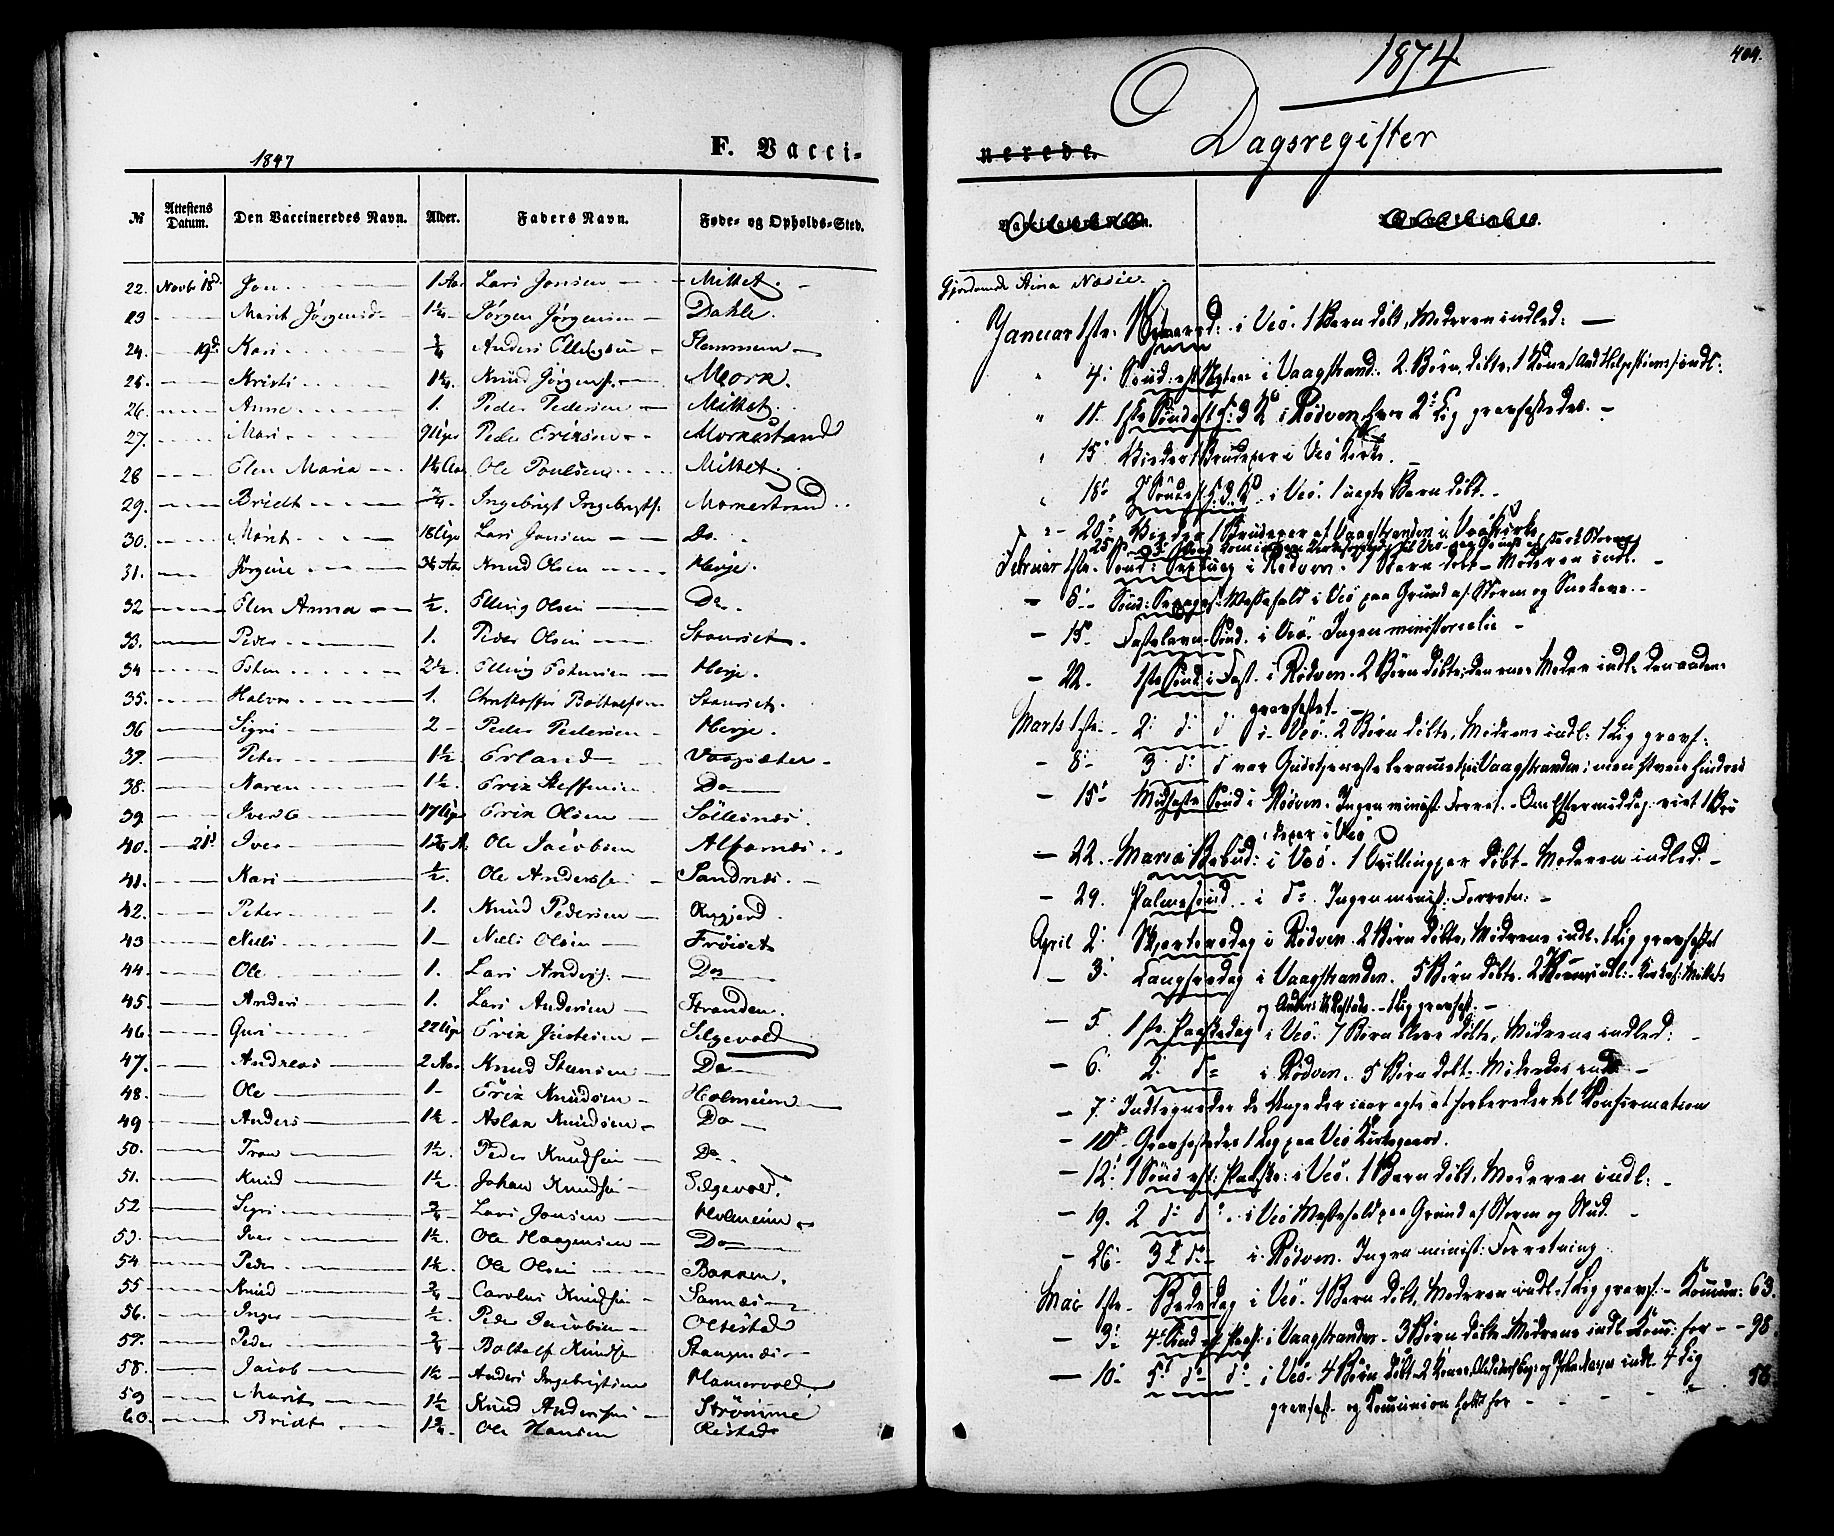 1847
F. Vacci-
No Attestens Datum. Den Vaccineredes Navn. Alder. Faders Navn. Føde- og Opholds-Sted.
22. Novbr 18d. Jon 1 Aar Lars Jonsen Mittet.
23 Marit Jørgensd 1¼. Jørgen Jørgensen Dahle.
24. 19d. Kari ¾ Anders Ellingsen Flemmem
25. Kristi 1¼. Knud Jørgens. Mork.
26. Anne 1. Peder Pedersen Mittet.
27. Mari 9 Uger Peder Eriksen Morkestrand
28 Elen Maria 1½ Aar Ole Poulsen Mittet.
29. Bridt ¾. Ingebrigt Ingebrigts. Morkestrand
30. Marit 18 Uger Lars Jonsen Do.
31. Jørgine 3½ Aar Knud Olsen Herje.
32 Elen Anna ½. Elling Olsen Do.
33. Peder 1. Peder Olsen Stavset.
34 Esten 2½. Elling Estensen Herje.
35. Halvor 1. Christoffer Boltolfsen Stavset.
36 Sigri 2 Peder Pedersen Herje.
37. Peter 1½ Erland Vaagsæter
38. Maren 1½ Erik Steffensen Do
39 Iver 17 Uger Erik Olsen Sølsnæs.
40. 21d. Iver 1¾ A. Ole Jacobsen Alfarnæs.
41. Kari ½. Ole Anderssen Sandnæs.
42. Peter 1. Knud Pedersen Ryggjerd.
43 Niels 1 Niels Olsen Frøiset
44. Ole 1. Lars Anders. Do
45. Anders 1. Lars Andersen Stranden.
46. Guri 22 Uger Erik Jostesen Selgevold
47. Andreas 2 Aar Knud Stensen Do
48. Ole 1 Erik Knudsen Holmeim
49 Anders 1¼. Aslak Knudsen Do
50. Tron 1½. Peder Knudsen Do.
51. Knud 1½ Johan Knudsen Selgevold.
52 Sigri ¾ Lars Jonsen Holmeim
53. Iver 1½. Ole Haagensen Do
54 Peder 1¼. Ole Olsen Bakken.
55 Knud ¾ Carolus Knudsen Sannæs
56. Inger ½ Peder Jacobsen Oltestad
57. Peder ¾ Boltolf Knudsen Stangnæs
58. Jacob 1½ Anders Ingebrigtsen Hamervold
59 Marit 1½ Knud Anderssen Strømme
60. Bridt 1¾. Ole Hansen Ristad
404.
1874
nerede.
Dagsregister
Januar 1ste. Nytaarsd: i Veø. 1 Barn døbt, Moderen indled:
4: Sønd: eft. Nytaar i Vaagstrand: 2 Børn døbte, 1 Kone indl:
11. 1ste Sønd eft H: 3 K i Rødven, hvor 2 Lig gravfæstedes.
15 Viedes 1 Brudepar i Veø Kirke.
18. 2 Sønd eft H. 3. K. i Veø. 1 uægte Barn døbt.
20. Viedes 1 Brudepar af Vaagstranden i Veø Kirke
25
Februar 1ste. Sønd: Septuag i Rødven. 1 Barn døbt Moderen indl.
8. Sønd: Sexages: Messefald i Veø paa Grund af Storm og Snekave.
15. Fastelavn Sønd. i Veø. Ingen ministerielle
22. 1ste Sønd i Fast. i Rødven. 2 Børn døbte, den enes Moder indl: den anden
gravfæstet
Marts 1ste. 2. d. d i Veø. 2 Børn døbte, Mødrene indl: 1 Lig gravf:
8. 3 d: d var Gudstjeneste berammet i Vaagstranden, men
15. Midfaste Sønd i Rødven. Ingen minist Forret. Om Eftermiddag. viet 1 Bru
depar i Veø
22. Maria Bebud: i Veø. 1 Tvillingpar døbt. Moderen indled.
29. Palmesønd. i do. Ingen minist: Forretn:
April 2. Skjærtorsdag i Rødven. 2 Børn døbte, Mødrene indl. 1 Lig gravfæstet
3. Langfredag i Vaagstranden. 5 Børn døbte. 2 Koner indl:
5. 1ste Paaskedag i Veø. 7 Børn bleve døbte, Mødrene indled:
6. 2. do i Rødven. 5 Børn døbt. Mødrenes indl
7. Indtegnedes de Unge der iaar agtes at forberedes til Konfirmation
10. Gravfæstedes 1 Lig paa Veø Kirkegaard.
12. 1 Sønd eft: Paaske: i Veø. 1 Barn døbt, Moderen indl:
19. 2 d: d: i Veø Messefald paa Grund af Storm og Slud.
26. 3 d: do i Rødven. Ingen minist: Forretning.
Mai 1ste. Bededag i Veø. 1 Barn døbt, Moderen indl. 1 Lig gravf. Kommun: 63.
3: 4 Sønd eft Paaske: i Vaagstranden. 3 Børn døbte Mødrene indl. Komm: for 98
10 5 do do i Veø. 4 Børn døbt. 2 Koner indl. 4 Lig
gravfæst. og Kommunion holdt for 58